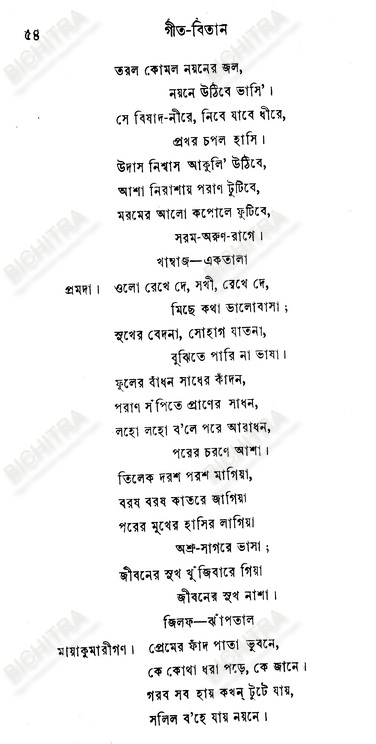 ৫৪
গীত-বিতান
তরল কোমল নয়নের জল,
নয়নে উঠিবে ভাসি'।
সে বিষাদ-নীরে, নিবে যাবে ধীরে,
প্রখর চপল হাসি।
উদাস নিশ্বাস আকুলি' উঠিবে,
আশা নিরাশায় পরাণ টুটিবে,
মরমের আলো কপোলে ফুটিবে,
সরম-অরুণ-রাগে।
খাম্বাজ—একতালা
প্রমদা। ওলো রেখে দে, সখী, রেখে দে,
মিছে কথা ভালোবাসা;
সুখের বেদনা, সোহাগ যাতনা,
বুঝিতে পারি না ভাষা।
ফুলের বাঁধন সাধের কাঁদন,
পরাণ সঁপিতে প্রাণের সাধন,
লহো লহো ব'লে পরে আরাধন,
পরের চরণে আশা।
তিলেক দরশ পরশ মাগিয়া,
বরষ বরষ কাতরে জাগিয়া
পরের মুখের হাসির লাগিয়া
অশ্রু-সাগরে ভাসা;
জীবনের সুখ খুঁজিবারে গিয়া
জীবনের সুখ নাশা।
জিলফ—ঝাঁপতাল
মায়াকুমারীগণ। প্রেমের ফাঁদ পাতা ভুবনে,
কে কোথা ধরা পড়ে, কে জানে।
গরব সব হায় কখন্ টুটে যায়,
সলিল ব'হে যায় নয়নে।
BICHITRA
BICHITRA
BICHITRA
BICHITRA
BICHITRA
BICHITRA